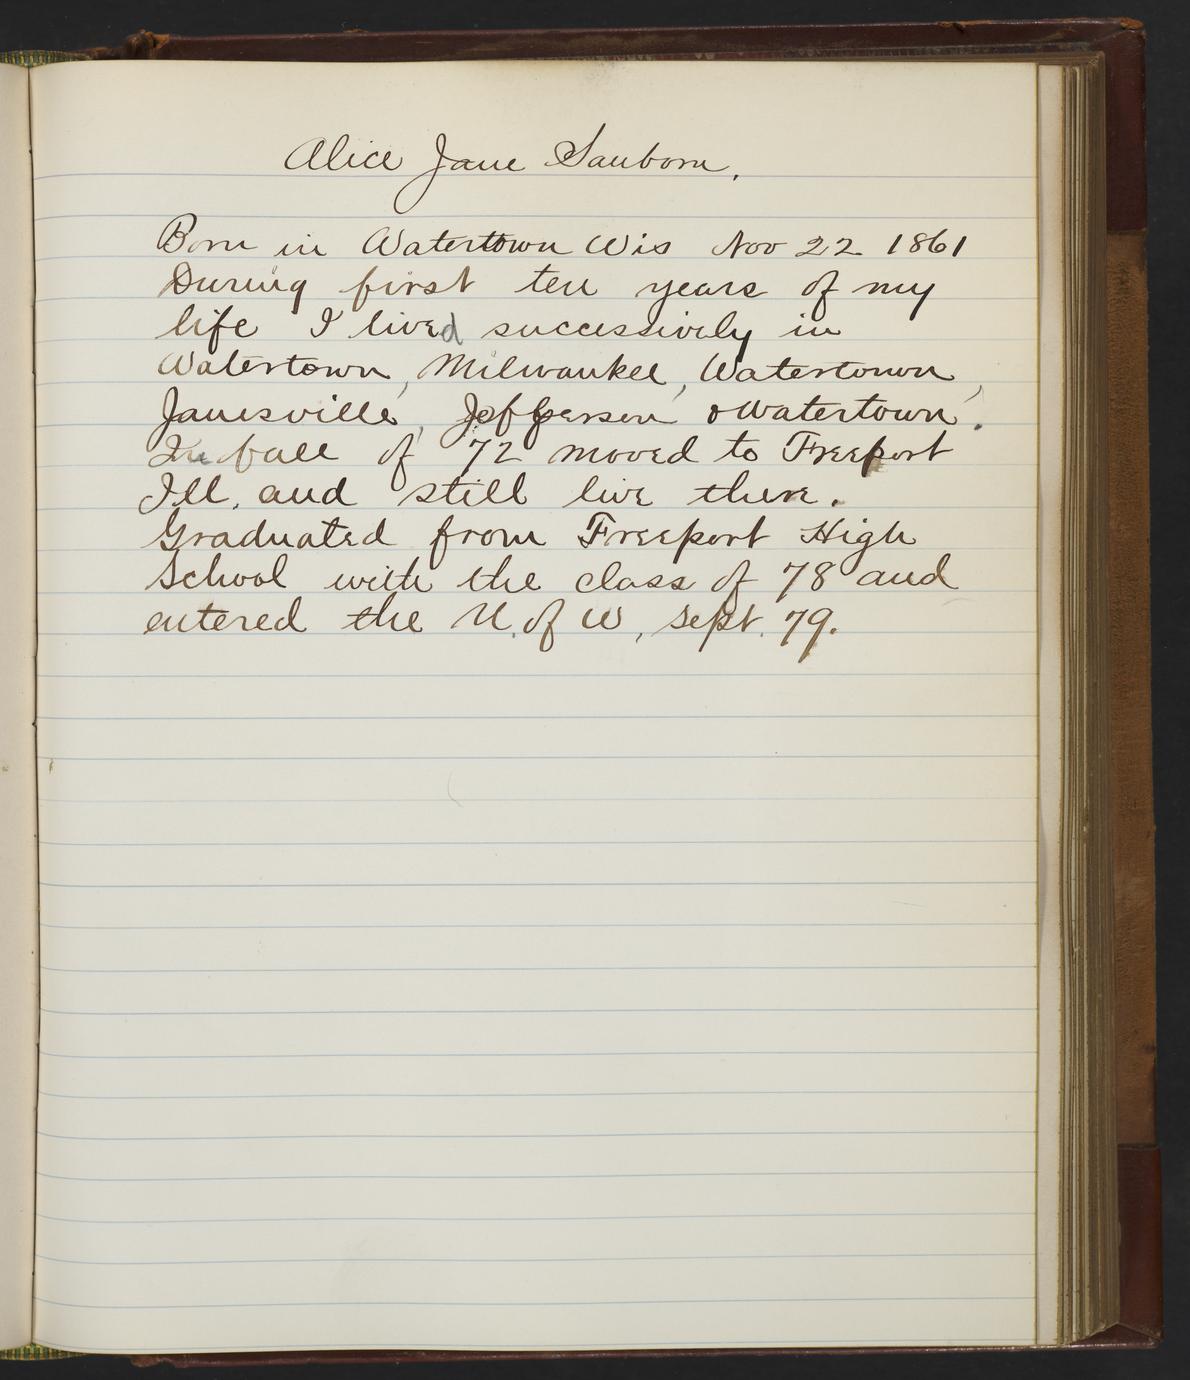 Alice Jane Sanborn.
Born in Watertown Wis Nov 22 1861
During first ten years of my
life I lived successively in
Watertown, Milwaukee, Watertown,
Janesville, Jefferson, & Watertown.
In fall of '72 moved to Freeport
Ill. and still live there.
Graduated from Freeport High
School with the class of '78 and
entered the U. of W., Sept. 79.